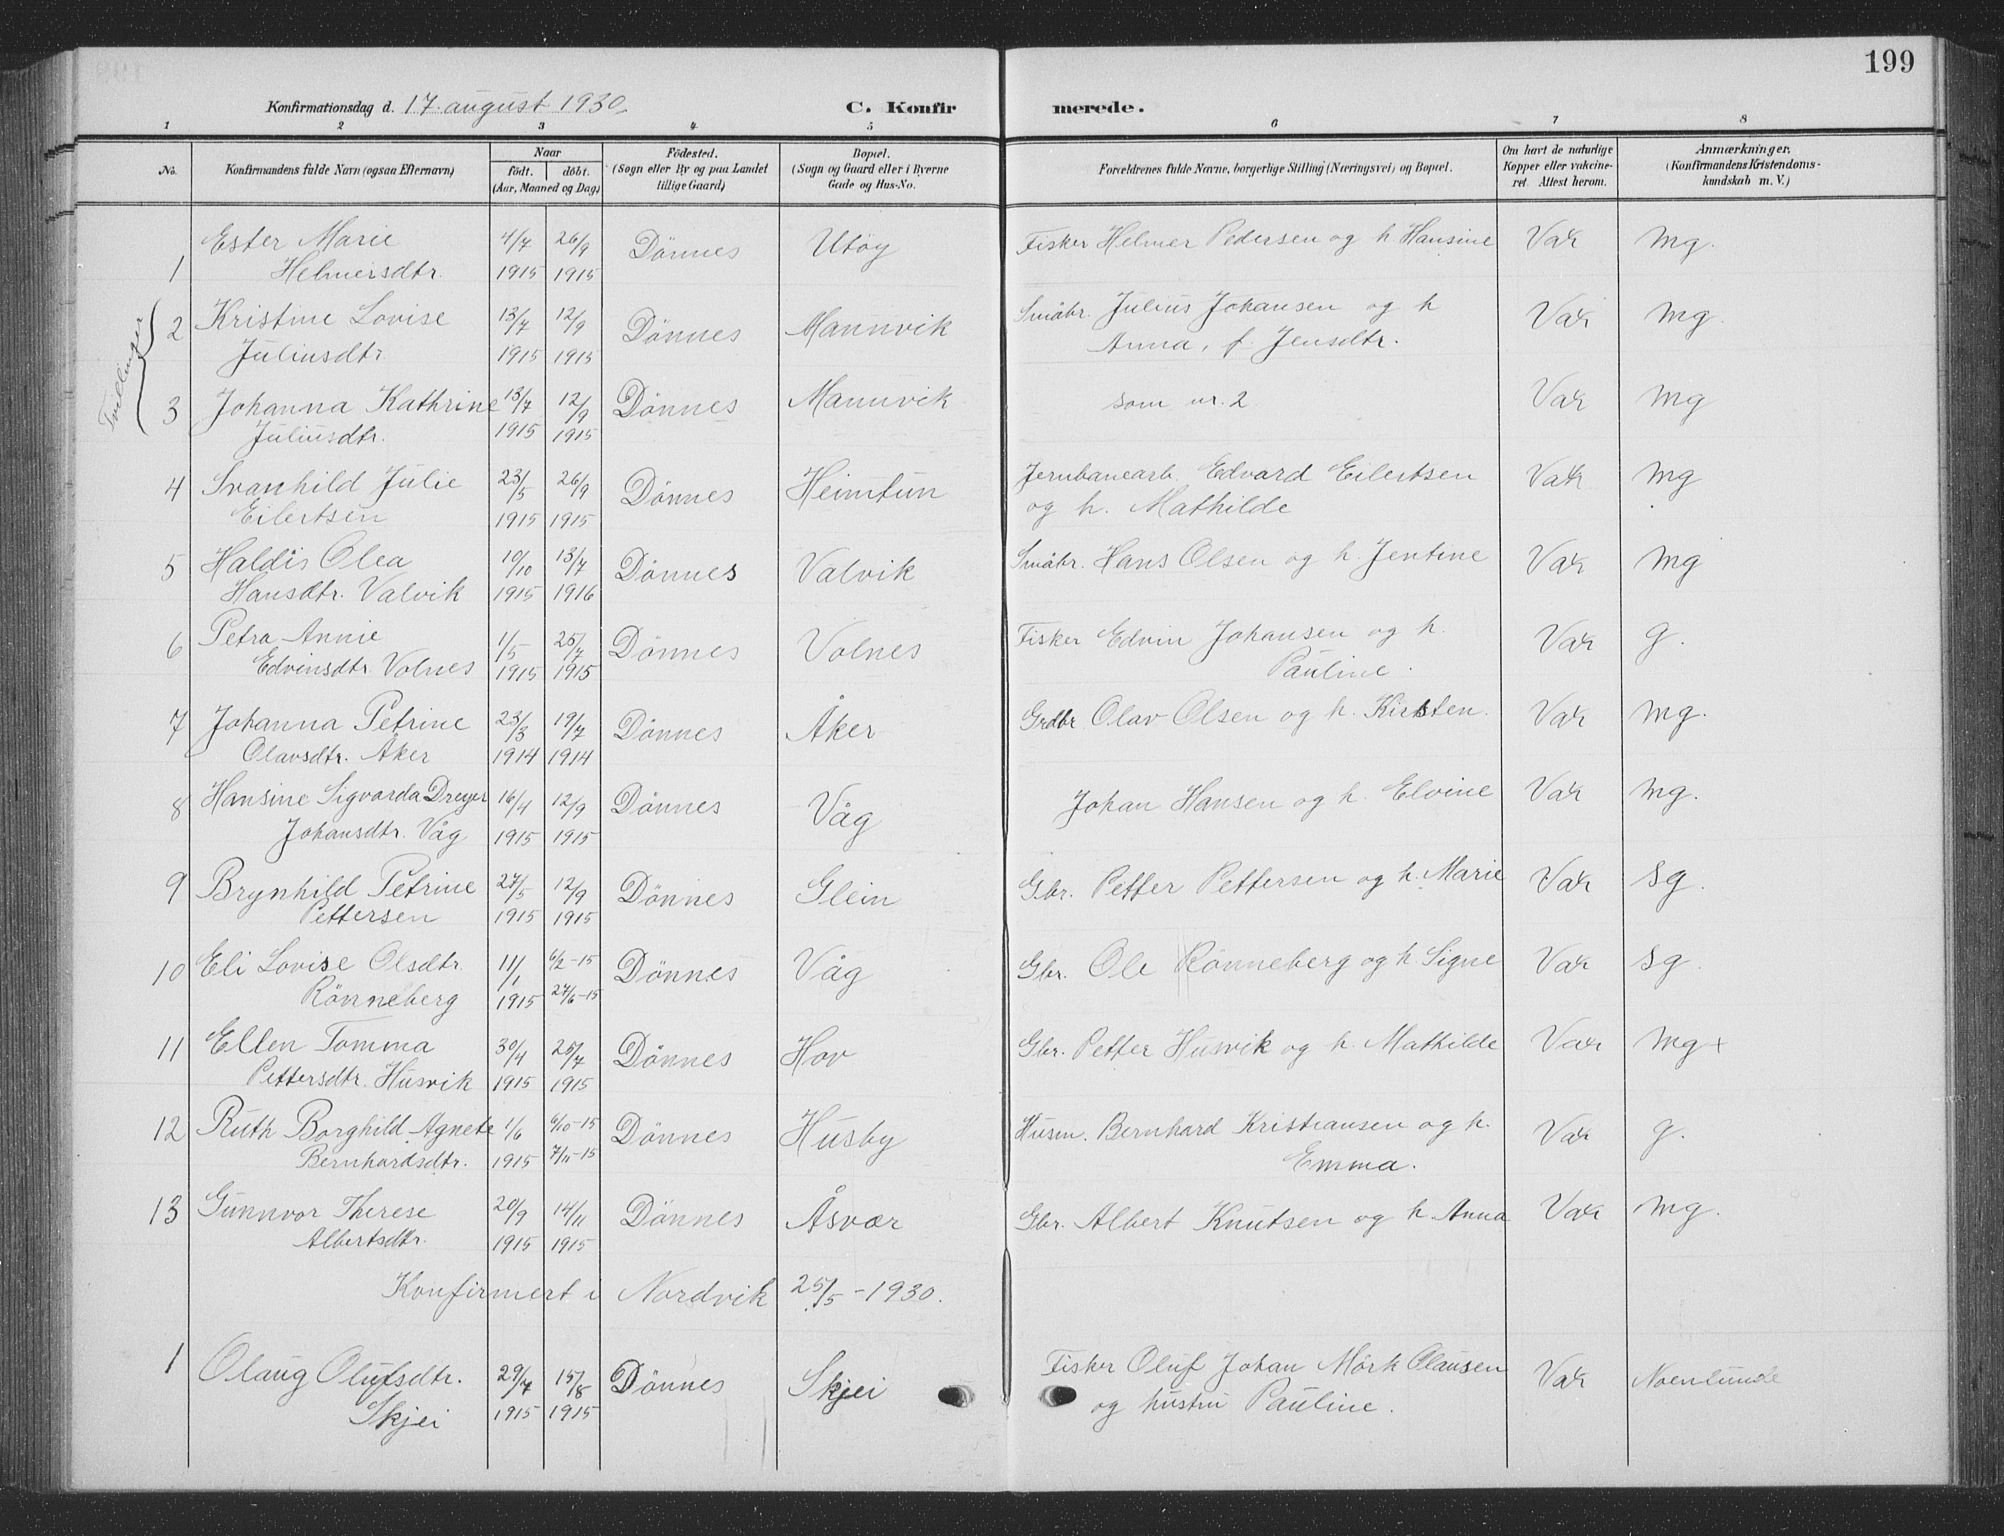 199
Konfirmationsdag d. 17. august 1930.
C. Konfirmerede.
1 2 3 4 5 6 7 8
No. Konfirmandens fulde Navn (ogsaa Efternavn) Naar födt. döbt. (Aar, Maaned og Dag) Födested. (Sogn eller By og paa Landet tillige Gaard.) Bopæl. (Sogn og Gaard eller i Byerne Gade og Hus-No. Forældrenes fulde Navne, borgerlige Stilling (Næringsvei) og Bopæl. Om havt de naturlige Kopper eller vakcineret. Attest herom. Anmærkninger. (Konfirmandens Kristendomskundskab m. V.)
1 Ester Marie 4/7 26/9 Dönnes Utöy Fisker Helmer Pedersen og h Hansine Vak mg.
Helmersdtr. 1915 1915
Tvillinger
2 Kristine Lovise 13/7 12/9 Dönnes Mannvik Småbr. Julius Johansen og h Vak mg.
Juliusdtr. 1915 1915 Anna, f. Jensdtr.
3 Johanna Kathrine 13/7 12/9 Dönnes Mannvik som nr. 2 Vak mg
Juliusdtr. 1915 1915
4 Svanhild Julie 23/5 26/9 Dönnes Heimtun Jernbanearb. Edvard Eilertsen Vak mg
Eilertsen 1915 1915 og h. Mathilde
5 Haldis Olea 10/10 13/7 Dönnes Valvik Småbr. Hans Olsen og h. Jentine Vak mg
Hansdtr. Valvik 1915 1916
6 Petra Annie 1/5 25/7 Dönnes Volnes Fisker Edvin Johansen og h. Vak g.
Edvinsdtr. Volnes 1915 1915 Pauline.
7 Johanna Petrine 23/3 19/7 Dönnes Åker Grdbr. Olav Olsen og h. Kirsten. Vak mg.
Olavsdtr. Åker 1914 1914
8 Hansine Sigvarda Dreyer 16/4 12/9 Dönnes Våg Johan Hansen og h. Elvine Vak mg.
Johansdtr. Våg 1915 1915
9 Brynhild Petrine 27/5 12/9 Dönnes Glein Gbr. Petter Pettersen og h. Marie Vak sg.
Pettersen 1915 1915
10 Eli Lovise Olsdtr. 11/1 6/2-15 Dönnes Våg Gbr. Ole Rönneberg og h Signe Vak sg.
Rönneberg 1915 27/6-15
11 Ellen Tomma 30/4 25/7 Dönnes Hov Gbr. Petter Husvik og h. Mathilde Vak mg+
Pettersdtr. Husvik 1915 1915
12 Ruth Borghild Agnete 1/6 6/10-15 Dönnes Husby Husm. Bernhard Kristiansen og h. Vak g.
Bernhardsdtr. 1915 7/11-15 Emma.
13 Gunnvor Therese 20/9 14/11 Dönnes Åsvær Gbr. Albert Knutsen og h. Anna Vak mg.
Albertsdtr. 1915 1915
Konfirmert i Nordvik 25/5-1930.
1 Olaug Olufsdtr. 29/4 15/8 Dönnes Skjei Fisker Oluf Johan Mörk Olausen Vak Noenlunde
Skjei 1915 1915 og hustru Pauline.